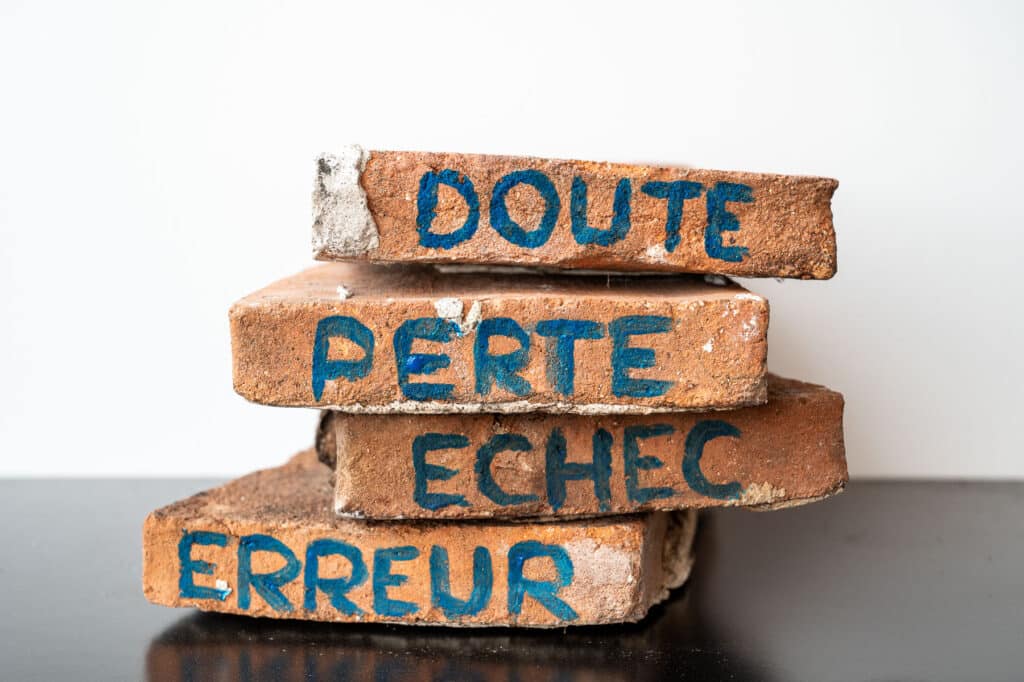 DOUTE
PERTE
ECHEC
ERREUR